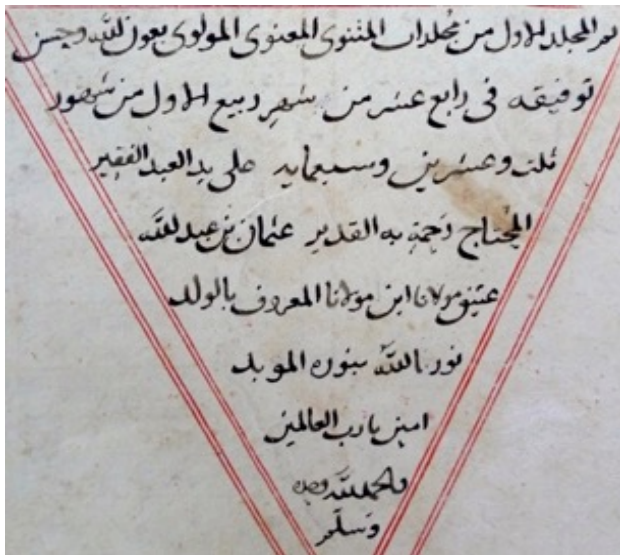 تم المجلد الاول من مجلدات المثنوى المعنوى المولوى بعون الله وحسن
توفيقه فى رابع عشر من شهر ربيع الاول من شهور
ثلث وعشرين وسبعمايه على يد العبد الفقير
المحتاج رحمة ربه القدير عثمان بن عبد الله
عتيق مولانا ابن مولانا المعروف بالولد
نور الله بنوره الموبد
امين يا رب العالمين
والحمد لله وحده
وسلم